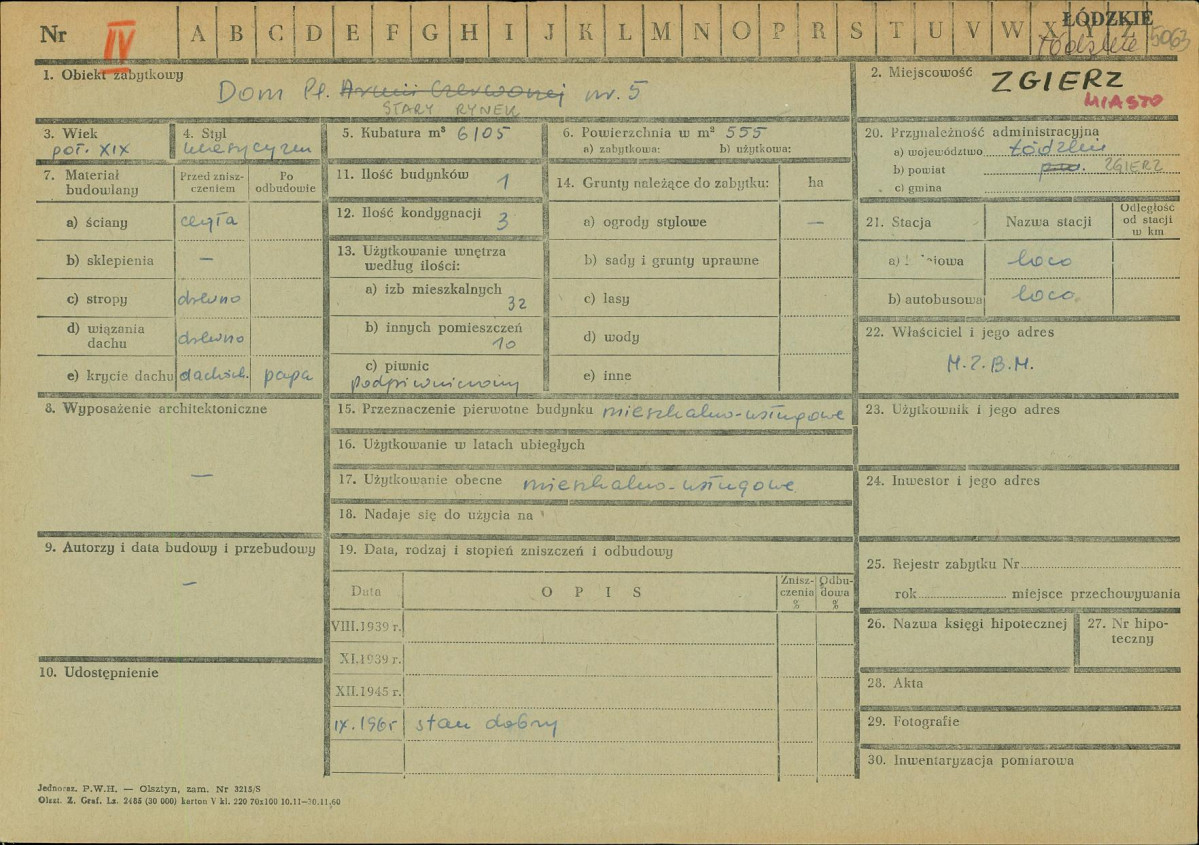 Nr IV A B C D E F G H I J K L M N O P R S T U V W X Y Z ŁÓDZKIE
Łódzkie 5063
1. Obiekt zabytkowy
Dom Pl. Armii Czerwonej nr. 5
STARY RYNEK
2. Miejscowość ZGIERZ
MIASTO
3. Wiek
poł. XIX
4. Styl
klasycyzm
5. Kubatura m³ 6105
6. Powierzchnia w m² 555
a) zabytkowa: b) użytkowa:
20. Przynależność administracyjna
a) województwo Łódzkie
b) powiat ZGIERZ
c) gmina
7. Materiał budowlany
Przed zniszczeniem
Po odbudowie
a) ściany cegła
b) sklepienia —
c) stropy drewno
d) wiązania dachu drewno
e) krycie dachu dachów. papa
11. Ilość budynków 1
12. Ilość kondygnacji 3
13. Użytkowanie wnętrza
według ilości:
a) izb mieszkalnych
32
b) innych pomieszczeń
10
c) piwnic
podpiwniczony
14. Grunty należące do zabytku: ha
a) ogrody stylowe —
b) sady i grunty uprawne
c) lasy
d) wody
e) inne
21. Stacja Nazwa stacji Odległość od stacji w km
a) loco
b) autobusowa loco
22. Właściciel i jego adres
M.Z.B.M.
8. Wyposażenie architektoniczne
—
15. Przeznaczenie pierwotne budynku mieszkalno-usługowe
16. Użytkowanie w latach ubiegłych
17. Użytkowanie obecne mieszkalno-usługowe
18. Nadaje się do użycia na
23. Użytkownik i jego adres
24. Inwestor i jego adres
9. Autorzy i data budowy i przebudowy
—
19. Data, rodzaj i stopień zniszczeń i odbudowy
Data OPIS Zniszczenia % Odbudowa %
VIII.1939 r.
XI.1939 r.
XII.1945 r.
IX.1965 stan dobry
10. Udostępnienie
25. Rejestr zabytku Nr
rok miejsce przechowywania
26. Nazwa księgi hipotecznej
27. Nr hipoteczny
28. Akta
29. Fotografie
30. Inwentaryzacja pomiarowa
Jednoraz. P.W.H. — Olsztyn, zam. Nr 3215/S
Olszt. Z. Graf. Lz. 2485 (30 000) karton V kl. 220 70x100 10.11—30.11.60